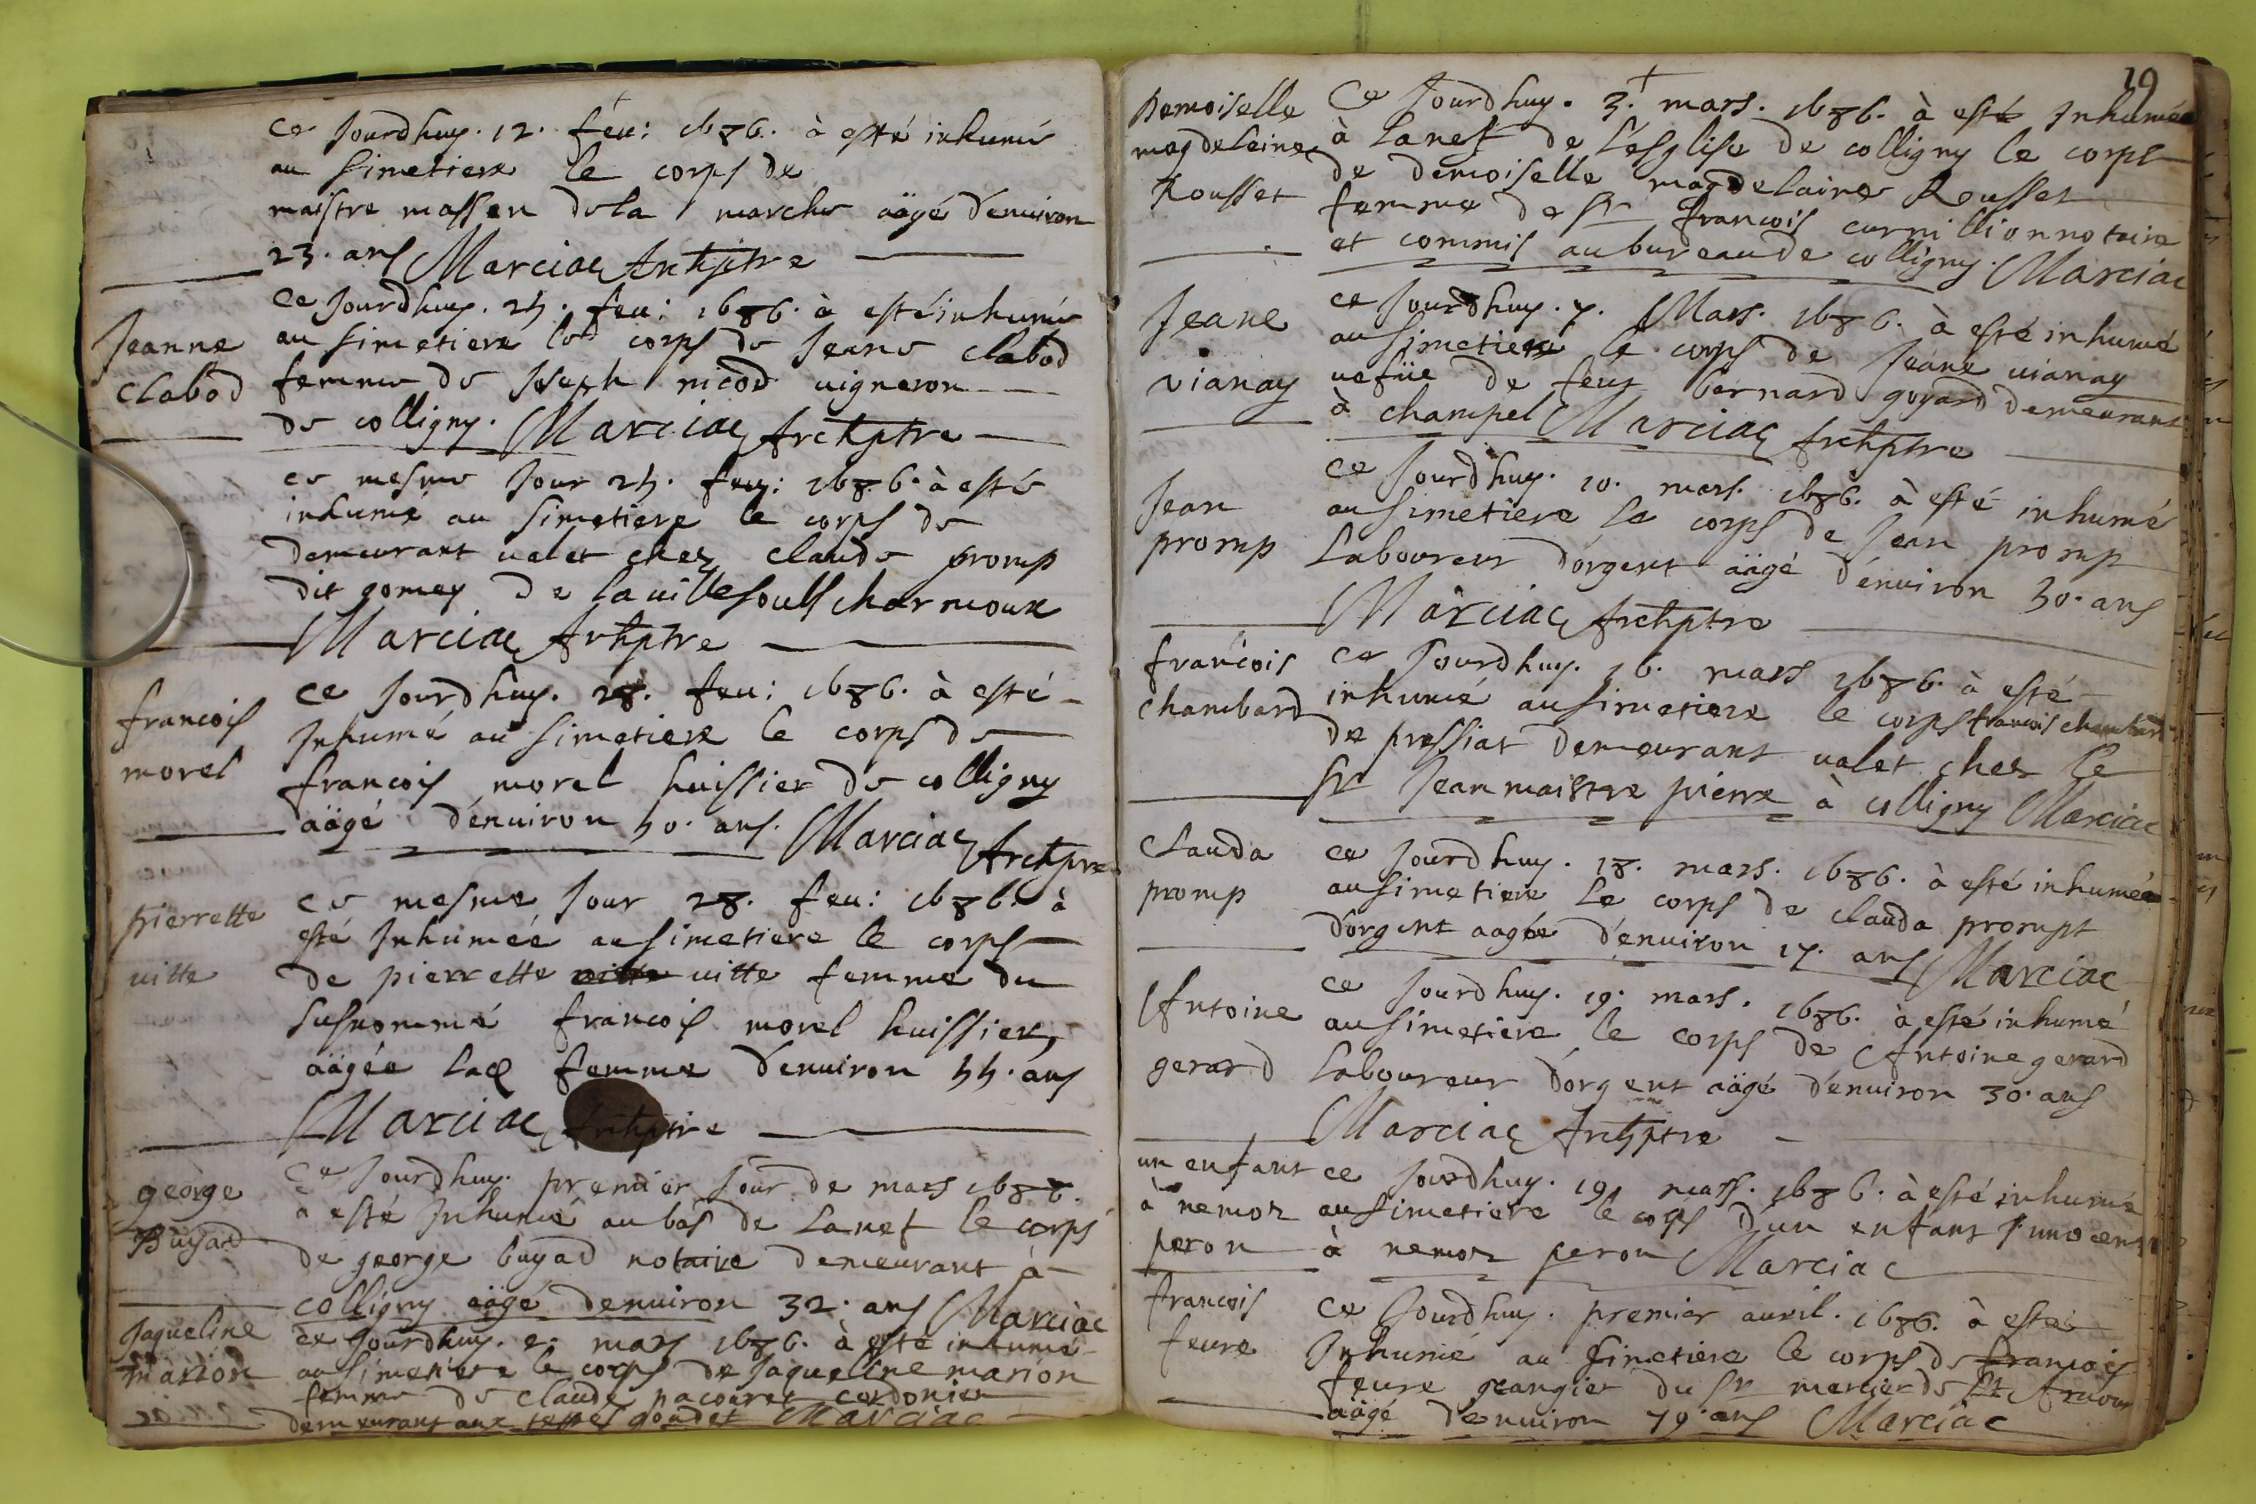 ce Jourdhuy. 12. feu: 1686. à esté inhumé
au simetiere le corps de
maistre massen dela marche aägé d'enuiron
23. ans Marciac Archptre
Jeanne
Clabod
ce Jourdhuy. feu: 1686. à esté inhumé
au simetiere le corps de Jeane Clabod
femme de Joseph nicod uigneron
de colligny. Marciac Archptre
ce mesme Jour feu: 1686. à esté
inhumé au simetiere le corps de
demeurant ualet chez claude promp
dit gomey de la uille soubs charmoux
Marciac Archptre
francois
morel
ce Jourdhuy. 28. feu: 1686. à esté
Inhumé au simetiere le corps de
francois morel huissier de colligny
aägé d'enuiron ans. Marciac
Archptre
pierrette
uitte
ce mesme Jour 28. feu: 1686. à
esté Inhumée au simetiere le corps
de pierrette uitte uitte femme du
susnommé francois morel huissier,
aägée femme d'enuiron ans
Marciac Archptre
george
Buyard
ce Jourdhuy. premier Jour de mars 1686.
à esté Inhumé au bas de La nef le corps
de george buyad notaire demeurant à
colligny aägé denuiron 32. ans Marciac
Jaqueline
marion
ce Jourdhuy. 2. mars 1686. à esté inhumé
au simetiere le corps de Jaqueline marion
femme de claude pacouret cordonier
demeurant aux goudet Marciac
19
Demoiselle
magdeleine
Rousset
Ce Jourdhuy. 3. mars. 1686. à esté Inhumée
à La nef de L'esglise de colligny le corps
de demoiselle magdelaine Rousset
femme de Sr francois curnillion notaire
et commis au bureau de colligny. Marciac
Jeane
vianay
ce Jourdhuy. 7. Mars. 1686. à esté inhumé
au simetiere le corps de Jeane uianay
uefüe de feut bernard goyard demeurant
à champel Marciac Archptre
Jean
promp
ce Jourdhuy. 10. mars. 1686. à esté inhumé
au simetiere le corps de Jean promp
Laboureur d'orgent aägé d'enuiron 30. ans
Marciac Archptre
francois
chambard
ce Jourdhuy. 16. mars 1686. à esté
inhumé au simetiere le corps francois chambard
de pressiat demeurant ualet chez le
Sr Jean maistre pierre à colligny Marciac
Clauda
promp
ce Jourdhuy. 18. mars. 1686. à esté inhumée
au simetiere le corps de clauda prompt
d'orgent aagée d'enuiron 17. ans Marciac
Antoine
gerard
ce Jourdhuy. 19. mars. 1686. à esté inhumé
au simetiere le corps de Antoine gerard
Laboureur d'orgent aägé d'enuiron 30. ans
Marciac Archptre
un enfant
à nemoz
peron
ce Jourdhuy. 19 mars. 1686. à esté inhumé
au simetiere le corps d'un enfant Innocent
à nemoz peron Marciac
francois
feure
ce Jourdhuy. premier auril. 1686. à esté
Inhumé au simetiere le corps de francois
feure grangier du Sr mercier de St Amour
aägé d'enuiron 79. ans Marciac